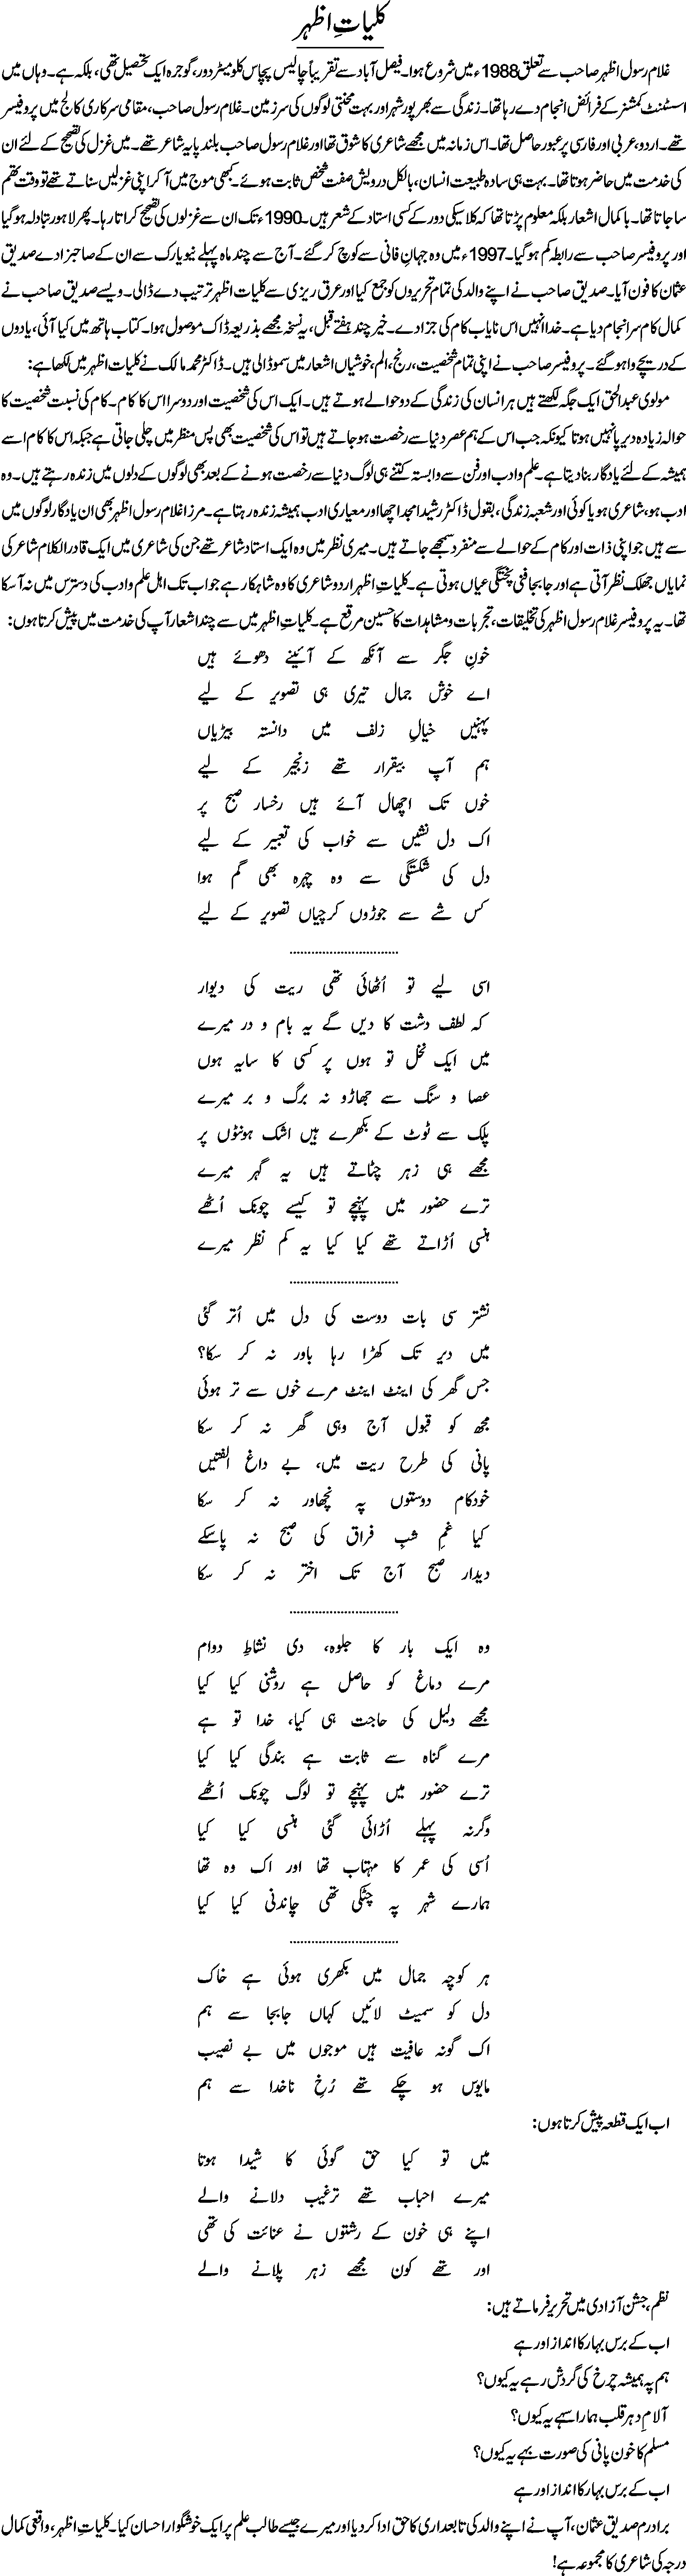 کلیاتِ اظہر
غلام رسول اظہر صاحب سے تعلق 1988ء میں شروع ہوا۔ فیصل آباد سے تقریباً چالیس پچاس کلومیٹر دور، گوجرہ ایک تحصیل تھی، بلکہ ہے۔ وہاں میں
اسسٹنٹ کمشنر کے فرائض انجام دے رہا تھا۔ زندگی سے بھرپور شہر اور بہت محنتی لوگوں کی سرزمین۔ غلام رسول صاحب، مقامی سرکاری کالج میں پروفیسر
تھے۔ اردو، عربی اور فارسی پر عبور حاصل تھا۔ اس زمانہ میں مجھے شاعری کا شوق تھا اور غلام رسول صاحب بلند پایہ شاعر تھے۔ میں غزل کی تصحیح کے لئے ان
کی خدمت میں حاضر ہوتا تھا۔ بہت ہی سادہ طبیعت انسان، بالکل درویش صفت شخص ثابت ہوئے۔ کبھی موج میں آ کر اپنی غزلیں سناتے تھے تو وقت تھم
سا جاتا تھا۔ باکمال اشعار بلکہ معلوم پڑتا تھا کہ کلاسیکی دور کے کسی استاد کے شعر ہیں۔ 1990ء تک ان سے غزلوں کی تصحیح کراتا رہا۔ پھر لاہور تبادلہ ہو گیا
اور پروفیسر صاحب سے رابطہ کم ہو گیا۔ 1997ء میں وہ جہانِ فانی سے کوچ کر گئے۔ آج سے چند ماہ پہلے نیویارک سے ان کے صاحبزادے صدیق
عثمان کا فون آیا۔ صدیق صاحب نے اپنے والد کی تمام تحریروں کو جمع کیا اور عرق ریزی سے کلیات اظہر ترتیب دے ڈالی۔ ویسے صدیق صاحب نے
کمال کام سرانجام دیا ہے۔ خدا انہیں اس نایاب کام کی جزا دے۔ خیر چند ہفتے قبل، یہ نسخہ مجھے بذریعہ ڈاک موصول ہوا۔ کتاب ہاتھ میں کیا آئی، یادوں
کے دریچے وا ہو گئے۔ پروفیسر صاحب نے اپنی تمام شخصیت، رنج، الم، خوشیاں اشعار میں سمو ڈالی ہیں۔ ڈاکٹر محمد مالک نے کلیات اظہر میں لکھا ہے:
مولوی عبدالحق ایک جگہ لکھتے ہیں ہر انسان کی زندگی کے دو حوالے ہوتے ہیں۔ ایک اس کی شخصیت اور دوسرا اس کا کام۔ کام کی نسبت شخصیت کا
حوالہ زیادہ دیرپا نہیں ہوتا کیونکہ جب اس کے ہم عصر دنیا سے رخصت ہو جاتے ہیں تو اس کی شخصیت بھی پس منظر میں چلی جاتی ہے جبکہ اس کا کام اسے
ہمیشہ کے لئے یادگار بنا دیتا ہے۔ علم و ادب اور فن سے وابستہ کتنے ہی لوگ دنیا سے رخصت ہونے کے بعد بھی لوگوں کے دلوں میں زندہ رہتے ہیں۔ وہ
ادب ہو، شاعری ہو یا کوئی اور شعبہ زندگی، بقول ڈاکٹر رشید امجد اچھا اور معیاری ادب ہمیشہ زندہ رہتا ہے۔ مرزا غلام رسول اظہر بھی ان یادگار لوگوں میں
سے ہیں جو اپنی ذات اور کام کے حوالے سے منفرد سمجھے جاتے ہیں۔ میری نظر میں وہ ایک استاد شاعر تھے جن کی شاعری میں ایک قادر الکلام شاعر کی
نمایاں جھلک نظر آتی ہے اور جابجا فنی پختگی عیاں ہوتی ہے۔ کلیاتِ اظہر اردو شاعری کا وہ شاہکار ہے جو اب تک اہل علم و ادب کی دسترس میں نہ آ سکا
تھا۔ یہ پروفیسر غلام رسول اظہر کی تخلیقات، تجربات و مشاہدات کا حسین مرقع ہے۔ کلیاتِ اظہر میں سے چند اشعار آپ کی خدمت میں پیش کرتا ہوں:
خونِ جگر سے آنکھ کے آئینے دھوئے ہیں
اے خوش جمال تیری ہی تصویر کے لیے
پہنیں خیالِ زلف میں دانستہ بیڑیاں
ہم آپ بیقرار تھے زنجیر کے لیے
خوں تک اچھال آئے ہیں رخسار صبح پر
اک دل نشیں سے خواب کی تعبیر کے لیے
دل کی شکستگی سے وہ چہرہ بھی گم ہوا
کس شے سے جوڑوں کرچیاں تصویر کے لیے
..............................
اسی لیے تو اُٹھائی تھی ریت کی دیوار
کہ لطف دشت کا دیں گے یہ بام و در میرے
میں ایک نخل تو ہوں پر کسی کا سایہ ہوں
عصا و سنگ سے جھاڑو نہ برگ و بر میرے
پلک سے ٹوٹ کے بکھرے ہیں اشک ہونٹوں پر
مجھے ہی زہر چٹاتے ہیں یہ گہر میرے
ترے حضور میں پہنچے تو کیسے چونک اُٹھے
ہنسی اُڑاتے تھے کیا کیا یہ کم نظر میرے
..............................
نشتر سی بات دوست کی دل میں اُتر گئی
میں دیر تک کھڑا رہا باور نہ کر سکا؟
جس گھر کی اینٹ اینٹ مرے خوں سے تر ہوئی
مجھ کو قبول آج وہی گھر نہ کر سکا
پانی کی طرح ریت میں، بے داغ الفتیں
خودکام دوستوں پہ نچھاور نہ کر سکا
کیا غمِ شبِ فراق کی صبح نہ پاسکے
دیدار صبح آج تک اختر نہ کر سکا
..............................
وہ ایک بار کا جلوہ، دی نشاطِ دوام
مرے دماغ کو حاصل ہے روشنی کیا کیا
مجھے دلیل کی حاجت ہی کیا، خدا تو ہے
مرے گناہ سے ثابت ہے بندگی کیا کیا
ترے حضور میں پہنچے تو لوگ چونک اُٹھے
وگرنہ پہلے اُڑائی گئی ہنسی کیا کیا
اُسی کی عمر کا مہتاب تھا اور اک وہ تھا
ہمارے شہر پہ چٹکی تھی چاندنی کیا کیا
..............................
ہر کوچہ جمال میں بکھری ہوئی ہے خاک
دل کو سمیٹ لائیں کہاں جابجا سے ہم
اک گونہ عافیت ہیں موجوں میں بے نصیب
مایوس ہو چکے تھے رُخِ ناخدا سے ہم
اب ایک قطعہ پیش کرتا ہوں:
میں تو کیا حق گوئی کا شیدا ہوتا
میرے احباب تھے ترغیب دلانے والے
اپنے ہی خون کے رشتوں نے عنائت کی تھی
اور تھے کون مجھے زہر پلانے والے
نظم، جشن آزادی میں تحریر فرماتے ہیں:
اب کے برس بہار کا انداز اور ہے
ہم پہ ہمیشہ چرخ کی گردش رہے یہ کیوں؟
آلامِ دہر قلب ہمارا سہے یہ کیوں؟
مسلم کا خون پانی کی صورت بہے یہ کیوں؟
اب کے برس بہار کا انداز اور ہے
برادرم صدیق عثمان، آپ نے اپنے والد کی تابعداری کا حق ادا کر دیا اور میرے جیسے طالب علم پر ایک خوشگوار احسان کیا۔ کلیاتِ اظہر، واقعی کمال
درجہ کی شاعری کا مجموعہ ہے!